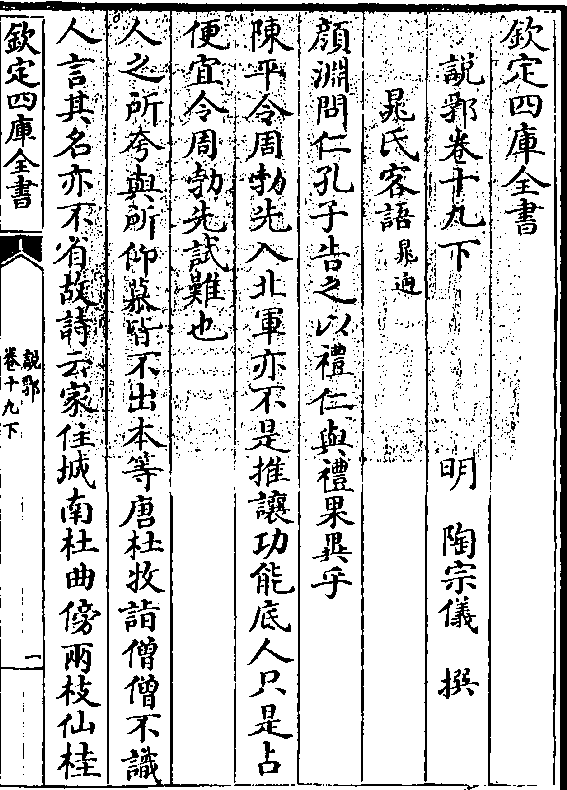 欽定四庫全書
說郛卷十九下　明　陶宗儀　撰
晁氏客語晁迥
顏淵問仁孔子告之以禮仁與禮果異乎
陳平令周勃先入北軍亦不是推讓功能底人只是占
便宜令周勃先試難也
人之所夸與所仰慕皆不出本等唐杜牧詣僧僧不識
人言其名亦不省故詩云家住城南杜曲傍兩枝仙桂
欽定四庫全書
說郛
卷十九下
一